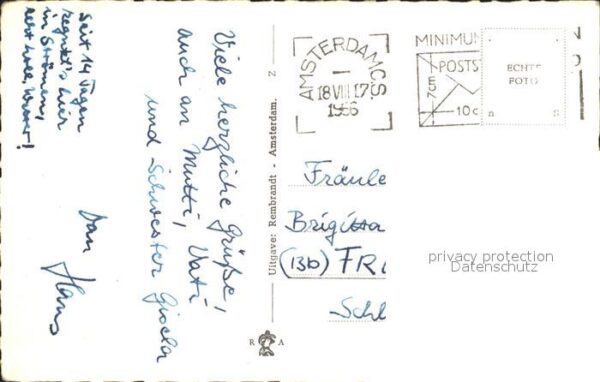 Viele herzliche Grüße,
auch an Mutti, Vati
und Schwester Gisela
Hans
Seit 14 Tagen
regnet's hier
in Strömen,
Uitgave: Rembrandt - Amsterdam. Z
R A
AMSTERDAM C.S.
18 VIII 17
1956
MINIMUM
POSTS
7cm
10c
ECHTE
FOTO
Fräule
Brigitta
(13b) FR
Schl
privacy protection
Datenschutz